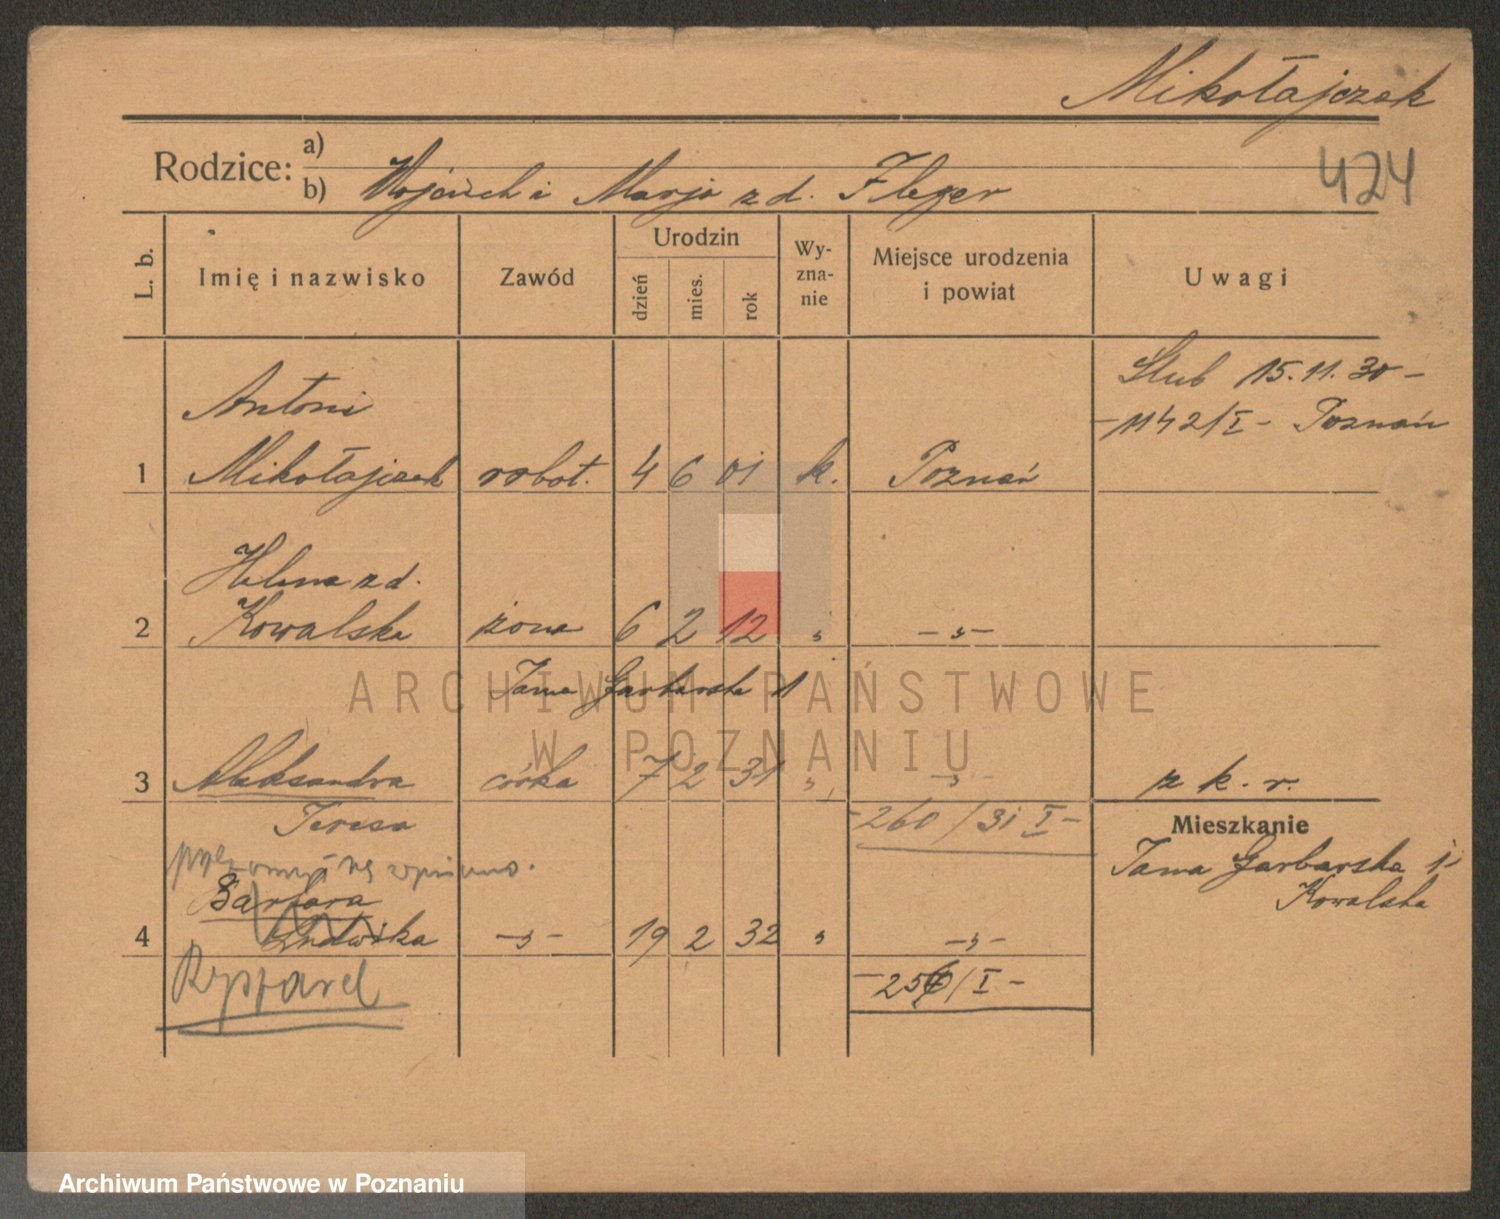 Mikołajczak
424
Rodzice: a)
b) Wojciech i Marja z d. Fleger
L. b.
Imię i nazwisko
Zawód
Urodzin
dzień
mies.
rok
Wy-
zna-
nie
Miejsce urodzenia
i powiat
Uwagi
Ślub 15.11.30 –
– 1142/I – Poznań
Antoni
1 Mikołajczak robot. 4 6 01 k. Poznań
Helena z d.
2 Kowalska żona 6 2 12 „ – „ –
Tama Garbarska 1
ARCHIWUM PAŃSTWOWE
W POZNANIU
3 Aleksandra córka 7 2 31 „ – „ – z k. r.
Teresa
– 260/31 I –
Mieszkanie
Tama Garbarska 1
Kowalska
nie wpisano.
Barbara
4 Ludwika – „ – 19 2 32 „ – „ –
Ryszard
/I –
Archiwum Państwowe w Poznaniu